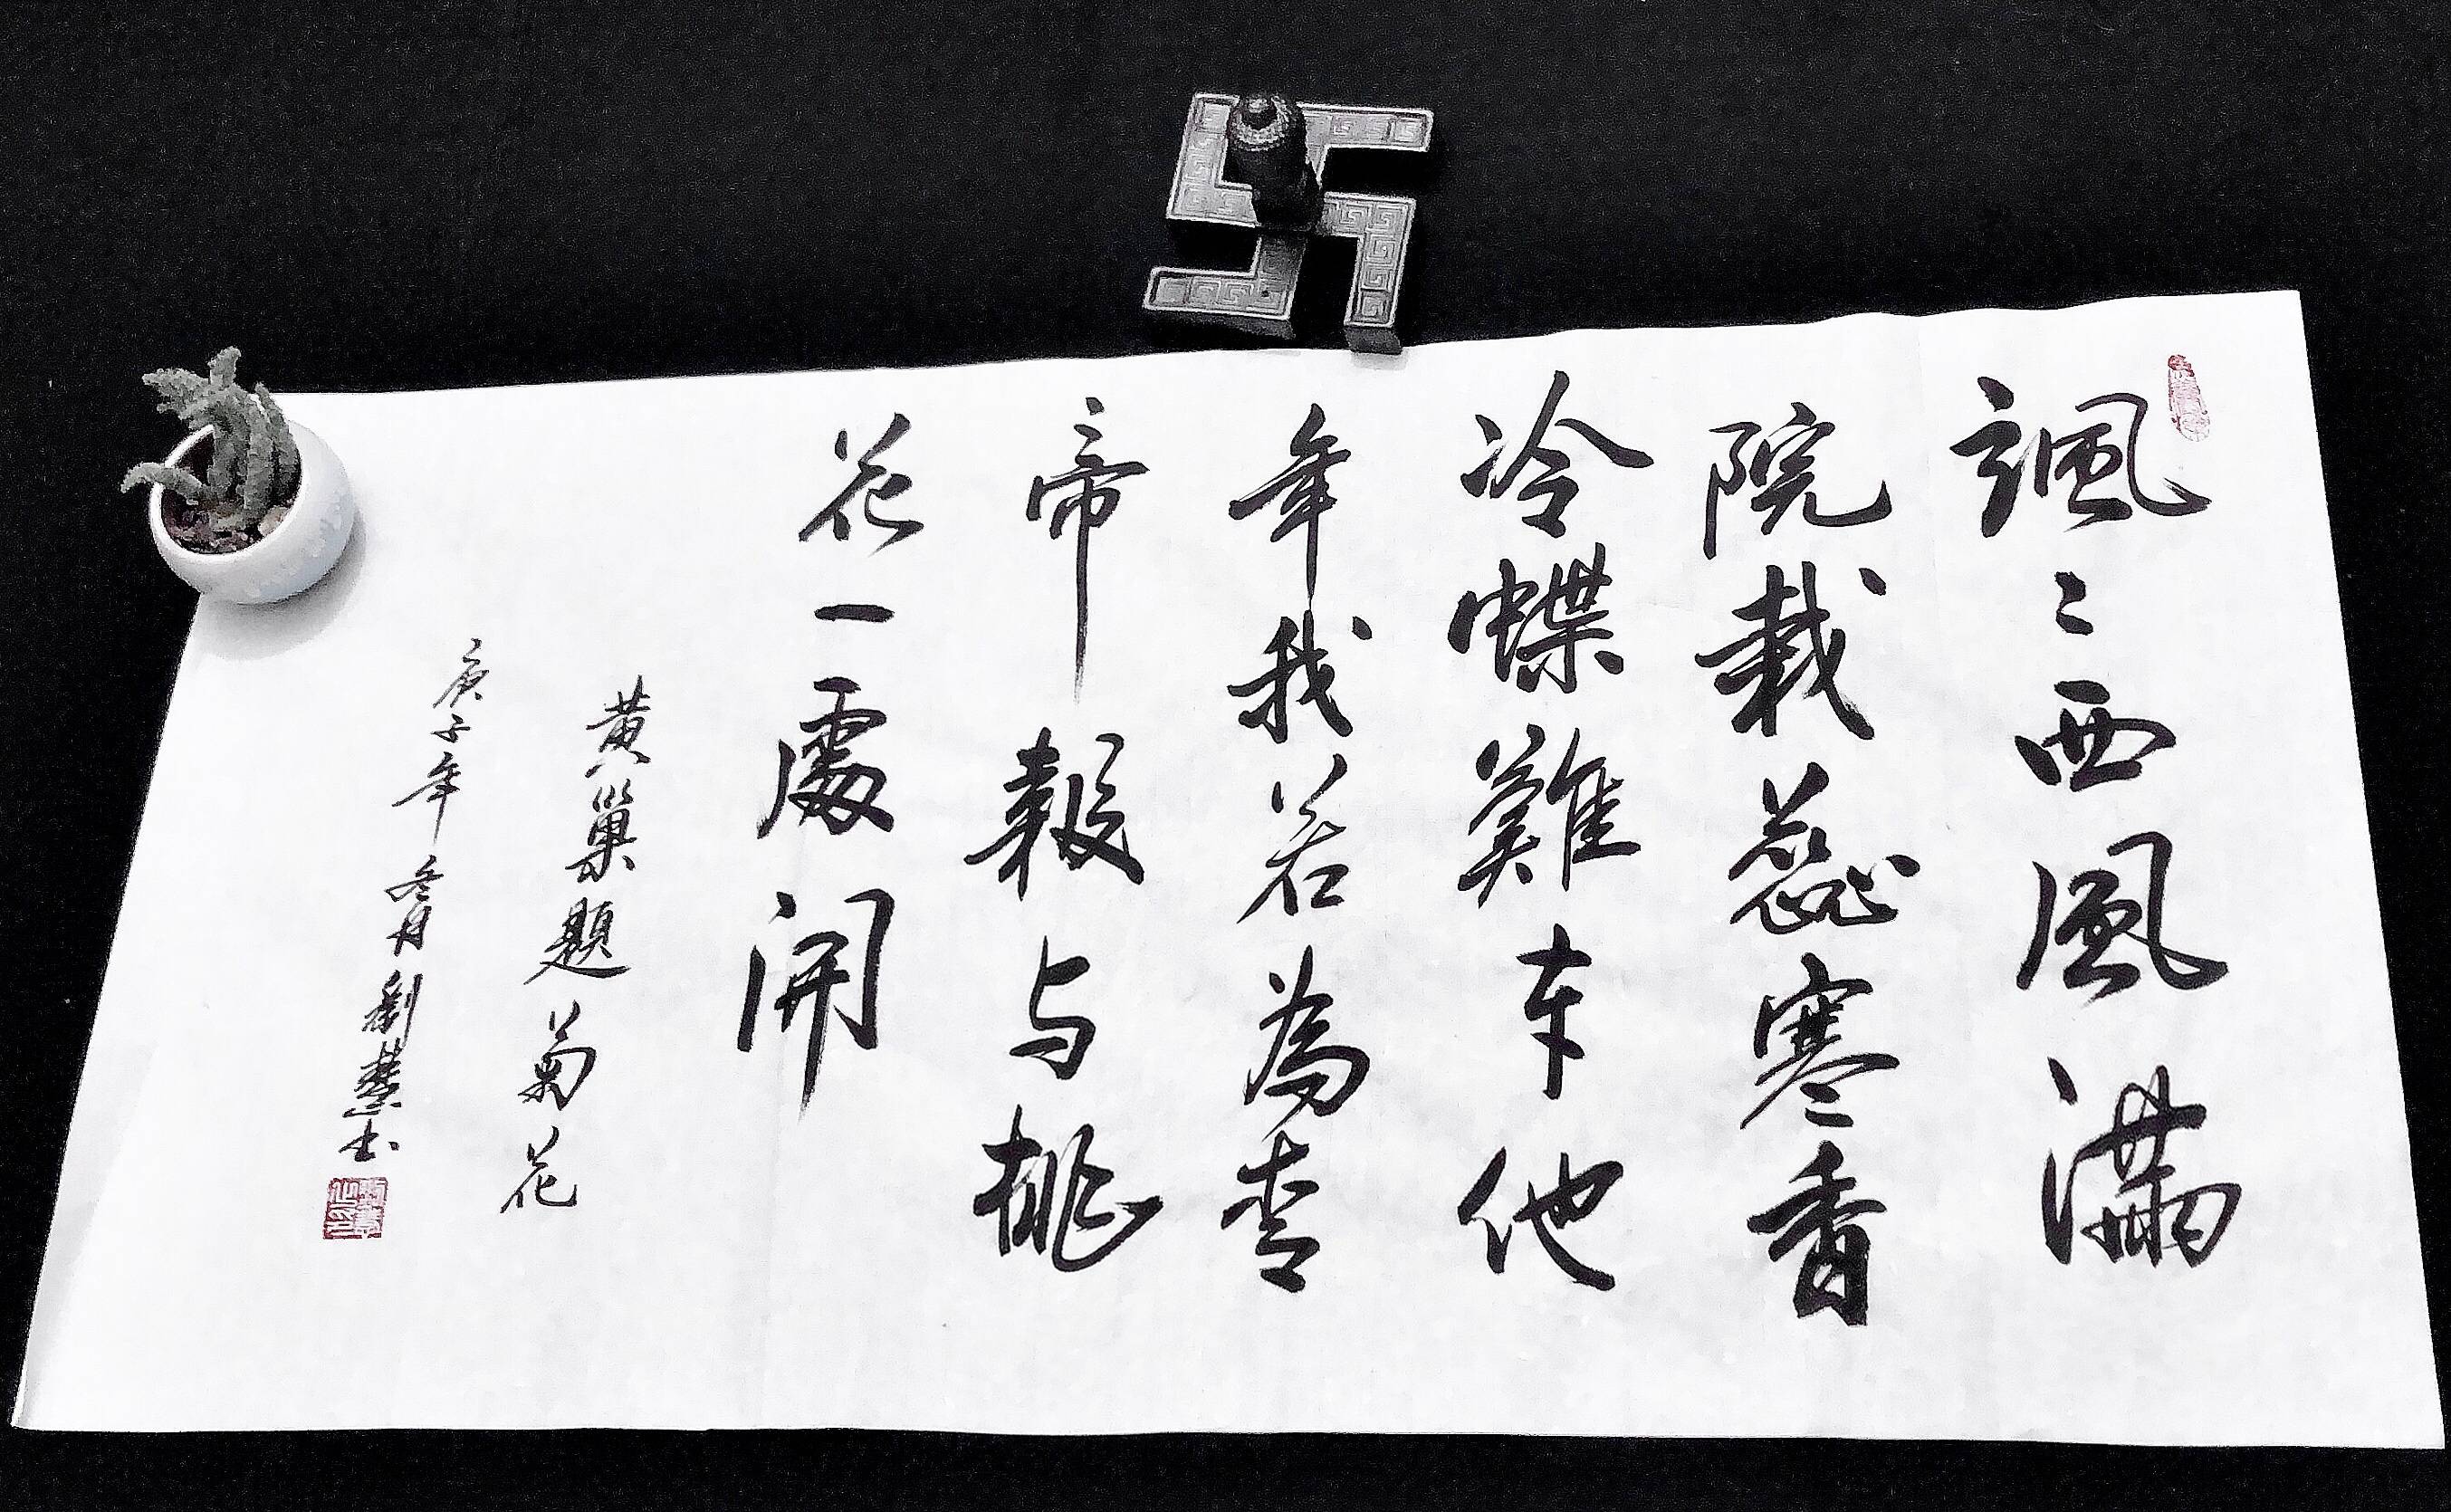 颯〻西風滿
院栽蕊寒香
冷蝶難来他
年我若為青
帝報与桃
花一處開
黄巢题菊花
庚子年冬月劉慧书